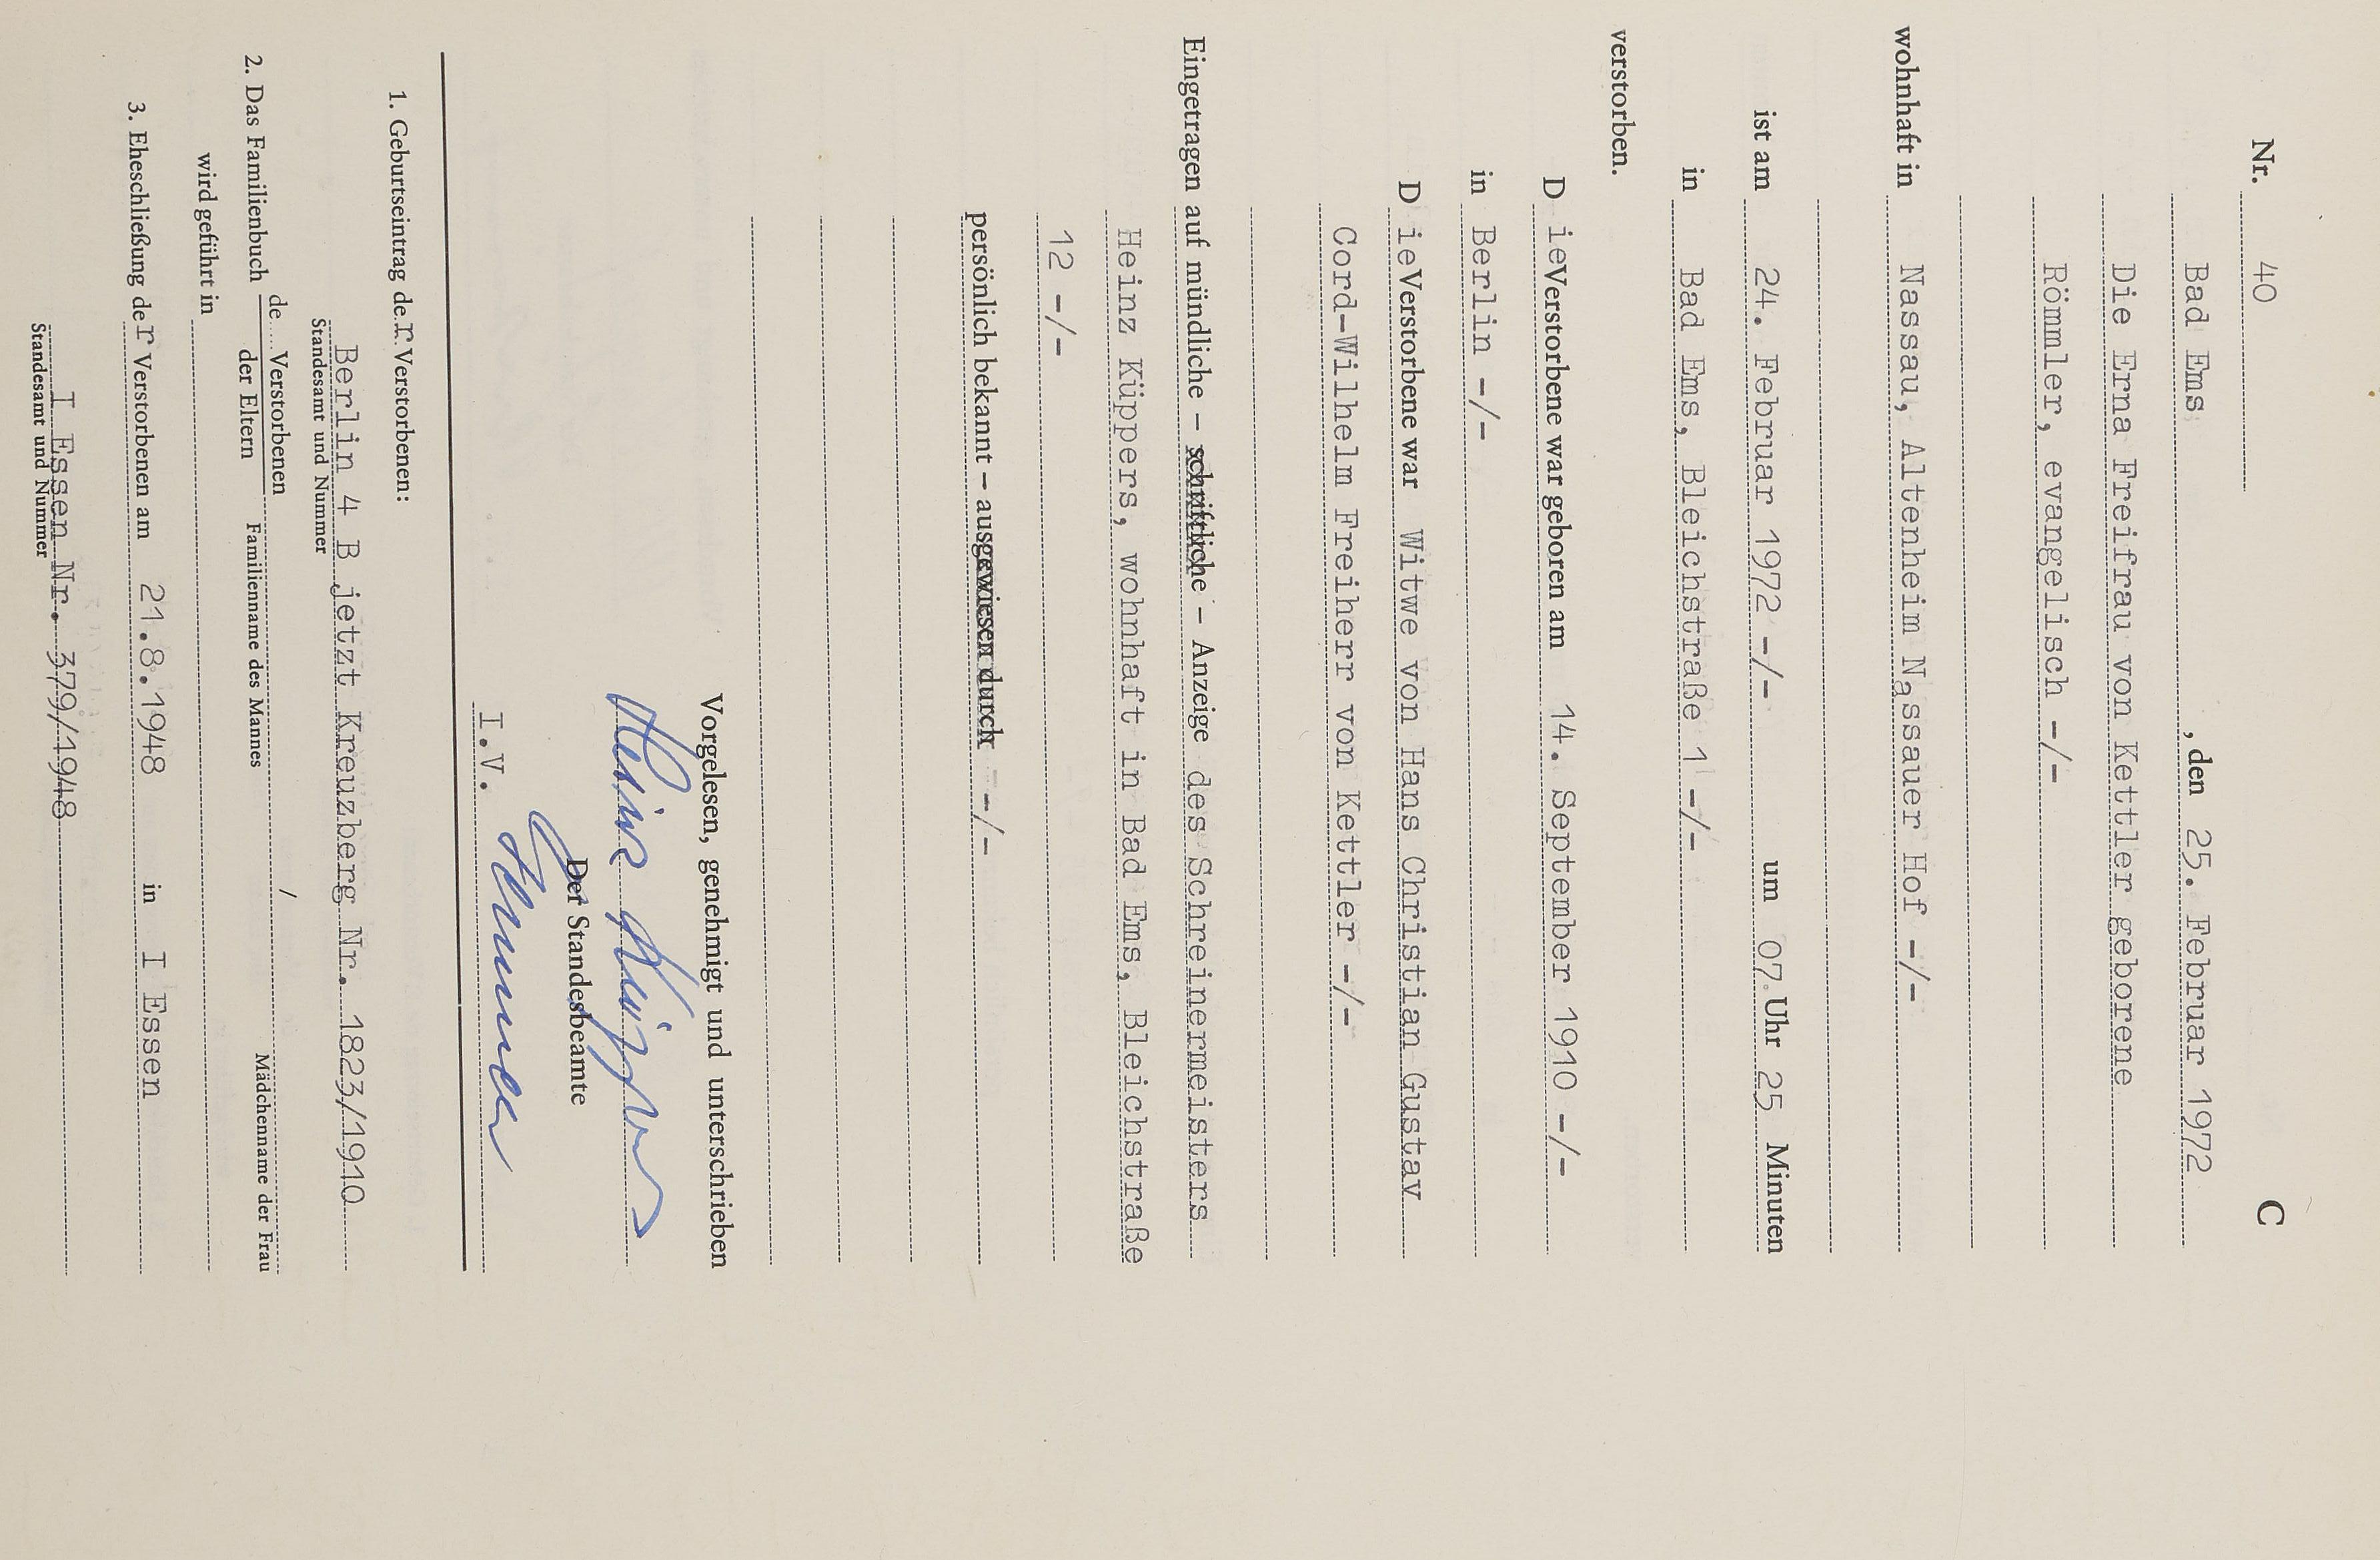 Nr. 40 C
Bad Ems, den 25. Februar 1972
Die Erna Freifrau von Kettler geborene
Römmler, evangelisch -/-
wohnhaft in Nassau, Altenheim Nassauer Hof -/-
ist am 24. Februar 1972 -/- um 07 Uhr 25 Minuten
in Bad Ems, Bleichstraße 1 -/-
verstorben.
D ie Verstorbene war geboren am 14. September 1910 -/-
in Berlin -/-
D ie Verstorbene war Witwe von Hans Christian Gustav
Cord-Wilhelm Freiherr von Kettler -/-
Eingetragen auf mündliche – schriftliche – Anzeige des Schreinermeisters
Heinz Küppers, wohnhaft in Bad Ems, Bleichstraße
12 -/-
persönlich bekannt – ausgewiesen durch -/-
Vorgelesen, genehmigt und unterschrieben
Heinz Küppers
Der Standesbeamte
I.V.
1. Geburtseintrag der Verstorbenen:
Berlin 4 B jetzt Kreuzberg Nr. 1823/1910
Standesamt und Nummer
2. Das Familienbuch de.... Verstorbenen /
der Eltern Familienname des Mannes Mädchenname der Frau
wird geführt in
3. Eheschließung der Verstorbenen am 21.8.1948 in I Essen
I Essen Nr. 379/1948
Standesamt und Nummer